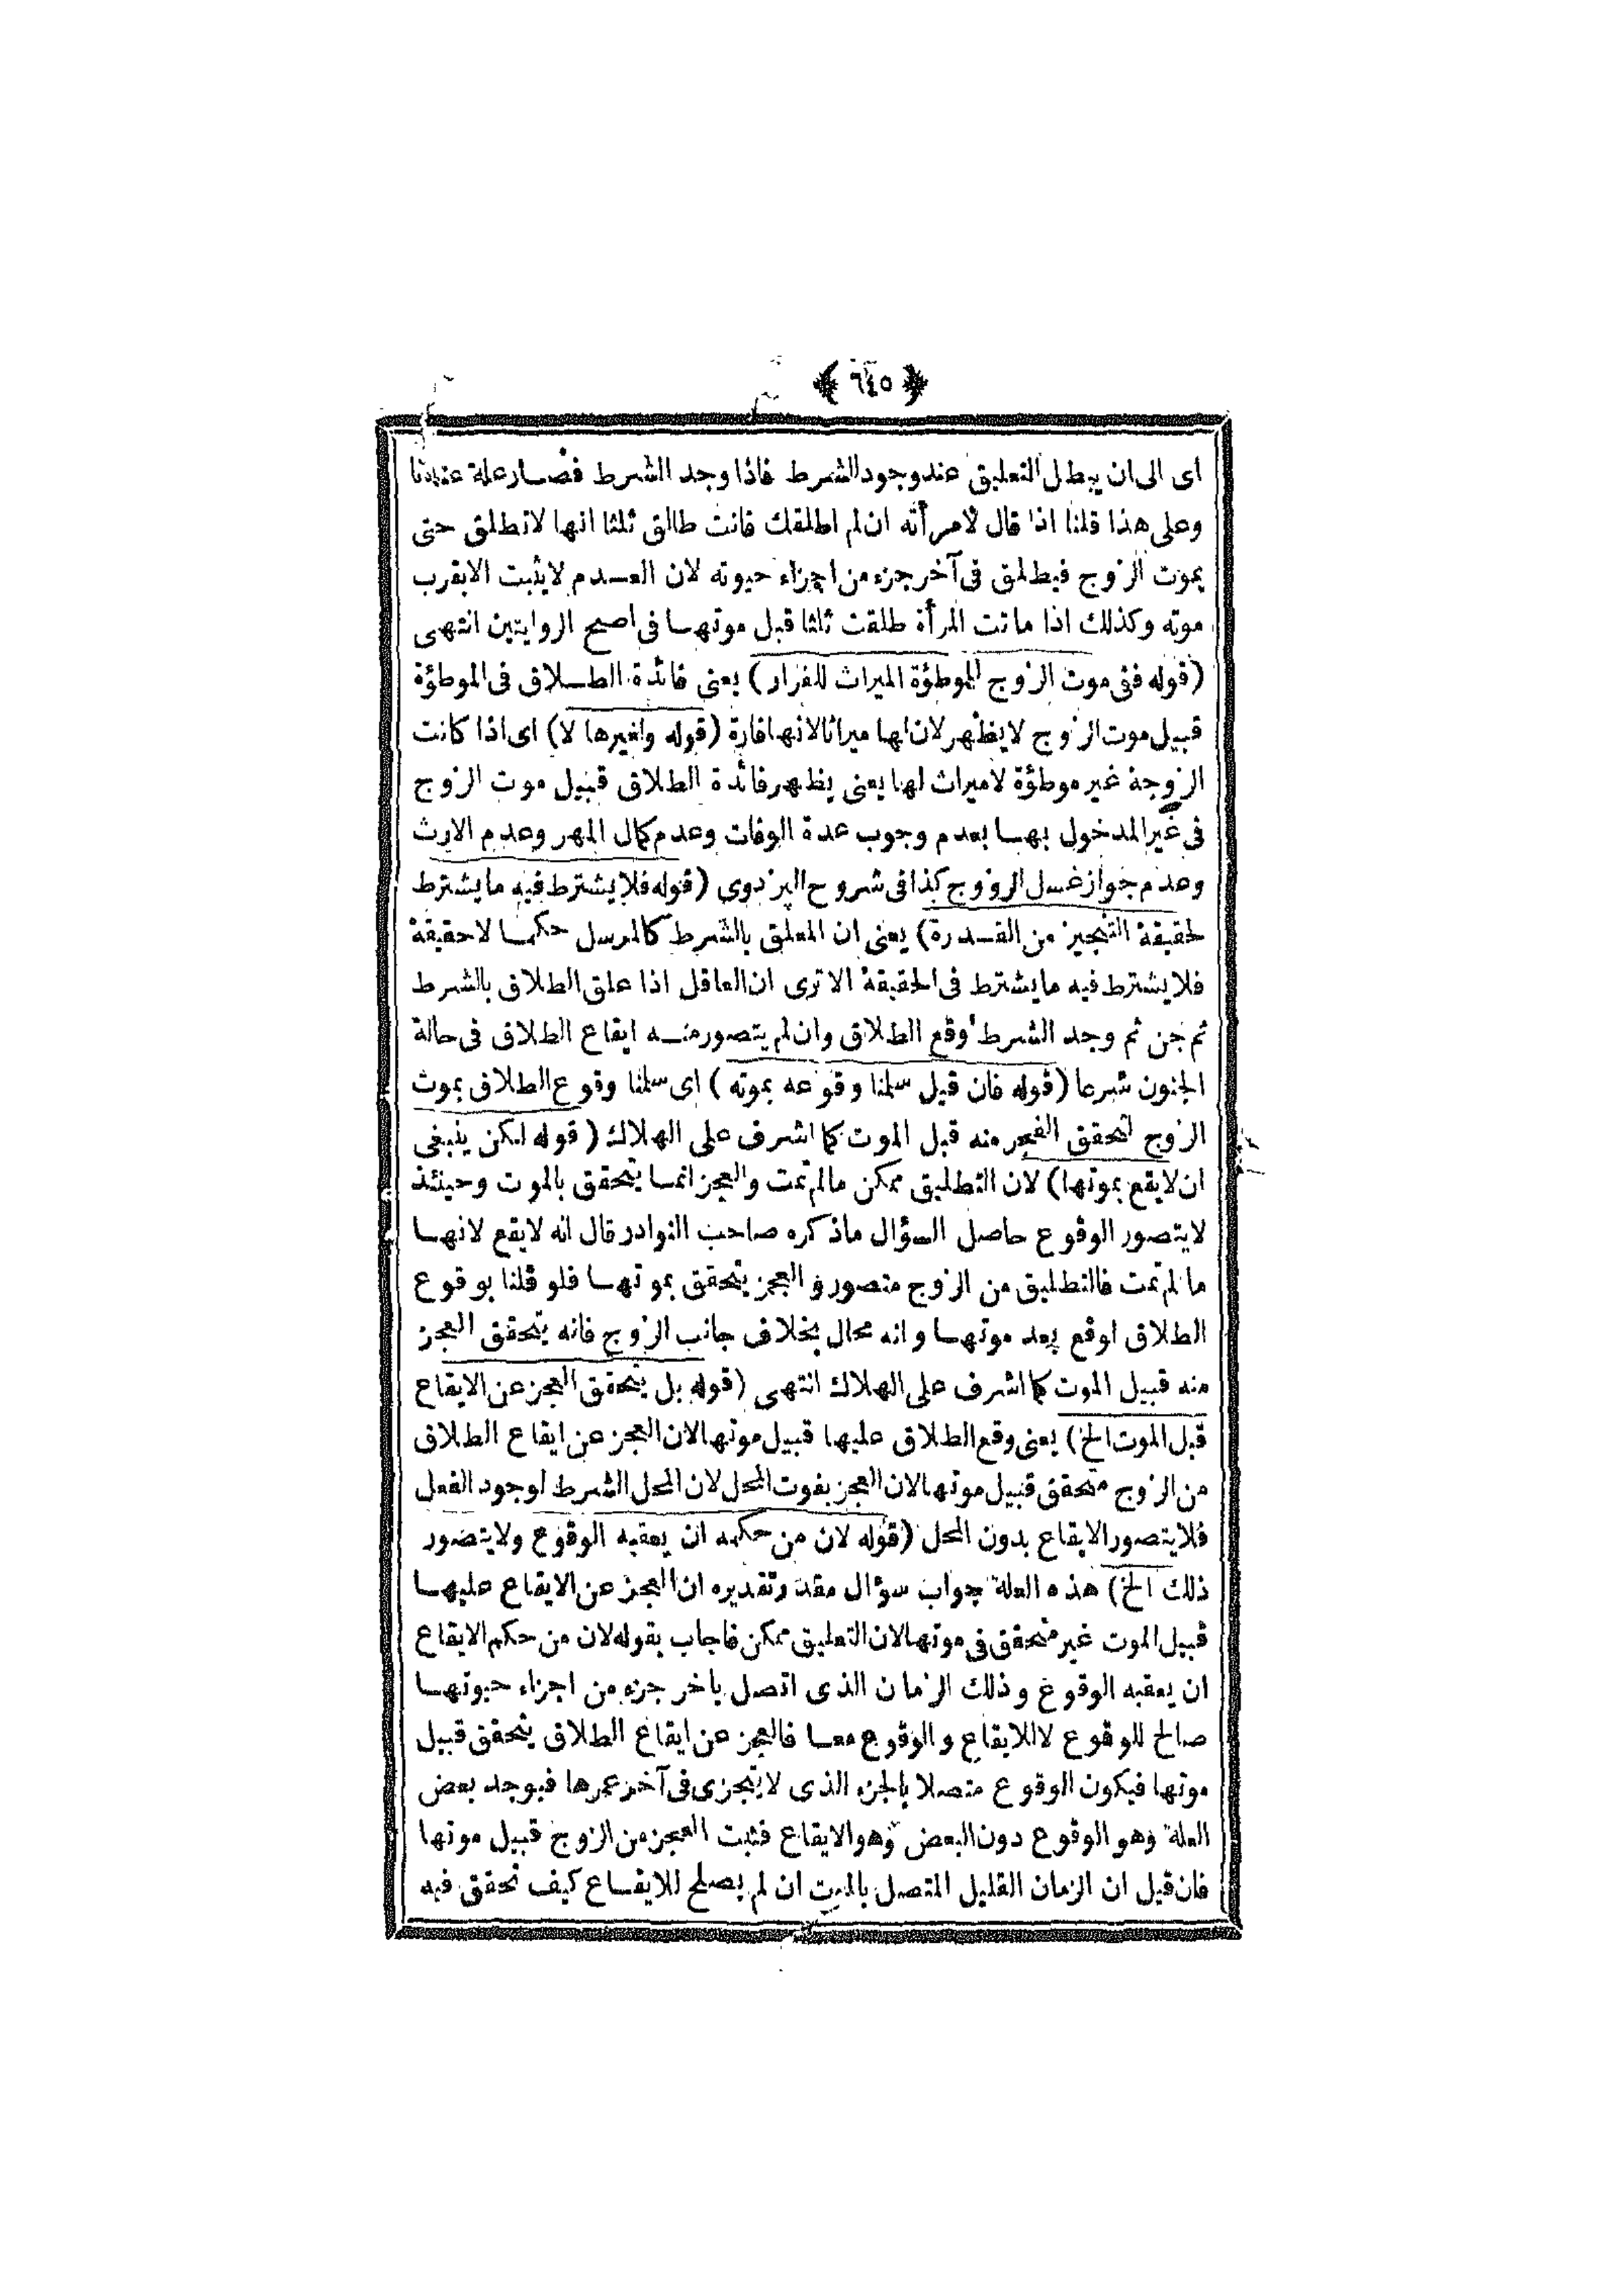 ﴿ ٦٤٥ ﴾
اى الى ان يبطل التعليق عند وجود الشرط فاذا وجد الشرط فصار علة عندنا
وعلى هذا قلنا اذا قال لامرأته ان لم اطلقك فانت طالق ثلثا انها لا تطلق حتى
يموت الزوج فيطلق فى آخر جزء من اجزاء حيوته لان العدم لا يثبت الا بقرب
موته وكذلك اذا ماتت المرأة طلقت ثلثا قبل موتها فى اصح الروايتين انتهى
(قوله ففى موت الزوج للموطؤة الميراث للفرار) يعنى فائدة الطلاق فى الموطؤة
قبيل موت الزوج لا يظهر لان لها ميراثا لانها فارة (قوله ولغيرها لا) اى اذا كانت
الزوجة غير موطؤة لا ميراث لها يعنى يظهر فائدة الطلاق قبيل موت الزوج
فى غير المدخول بها بعدم وجوب عدة الوفات وعدم كمال المهر وعدم الارث
وعدم جواز غسل الزوج كذا فى شروح البزدوى (قوله فلا يشترط فيه ما يشترط
لحقيقة التنجيز من القدرة) يعنى ان المعلق بالشرط كالمرسل حكما لا حقيقة
فلا يشترط فيه ما يشترط فى الحقيقة الا ترى ان العاقل اذا علق الطلاق بالشرط
ثم جن ثم وجد الشرط وقع الطلاق وان لم يتصور منه ايقاع الطلاق فى حالة
الجنون شرعا (قوله فان قيل سلمنا وقوعه بموته) اى سلمنا وقوع الطلاق بموت
الزوج لتحقق العجز منه قبل الموت كما اشرف على الهلاك (قوله لكن ينبغى
ان لا يقع بموتها) لان التطليق ممكن ما لم تمت والعجز انما يتحقق بالموت وحينئذ
لا يتصور الوقوع حاصل السؤال ما ذكره صاحب النوادر قال انه لا يقع لانها
ما لم تمت فالتطليق من الزوج متصور والعجز يتحقق بموتها فلو قلنا بوقوع
الطلاق لوقع بعد موتها وانه محال بخلاف جانب الزوج فانه يتحقق العجز
منه قبيل الموت كما اشرف على الهلاك انتهى (قوله بل يتحقق العجز عن الايقاع
قبل الموت الخ) يعنى وقع الطلاق عليها قبيل موتها لان العجز عن ايقاع الطلاق
من الزوج متحقق قبيل موتها لان العجز بفوت المحل لان المحل الشرط لوجود الفعل
فلا يتصور الايقاع بدون المحل (قوله لان من حكمه ان يعقبه الوقوع ولا يتصور
ذلك الخ) هذه العلة جواب سؤال مقدر تقديره ان العجز عن الايقاع عليها
قبيل الموت غير متحقق فى موتها لان التعليق ممكن فاجاب بقوله لان من حكم الايقاع
ان يعقبه الوقوع وذلك الزمان الذى اتصل باخر جزء من اجزاء حيوتها
صالح للوقوع لا للايقاع والوقوع معا فالعجز عن ايقاع الطلاق يتحقق قبيل
موتها فيكون الوقوع متصلا بالجزء الذى لا يتجزى فى آخر عمرها فيوجد بعض
العلة وهو الوقوع دون البعض وهو الايقاع فثبت العجز من الزوج قبيل موتها
فان قيل ان الزمان القليل المتصل بالموت ان لم يصلح للايقاع كيف تحقق فيه